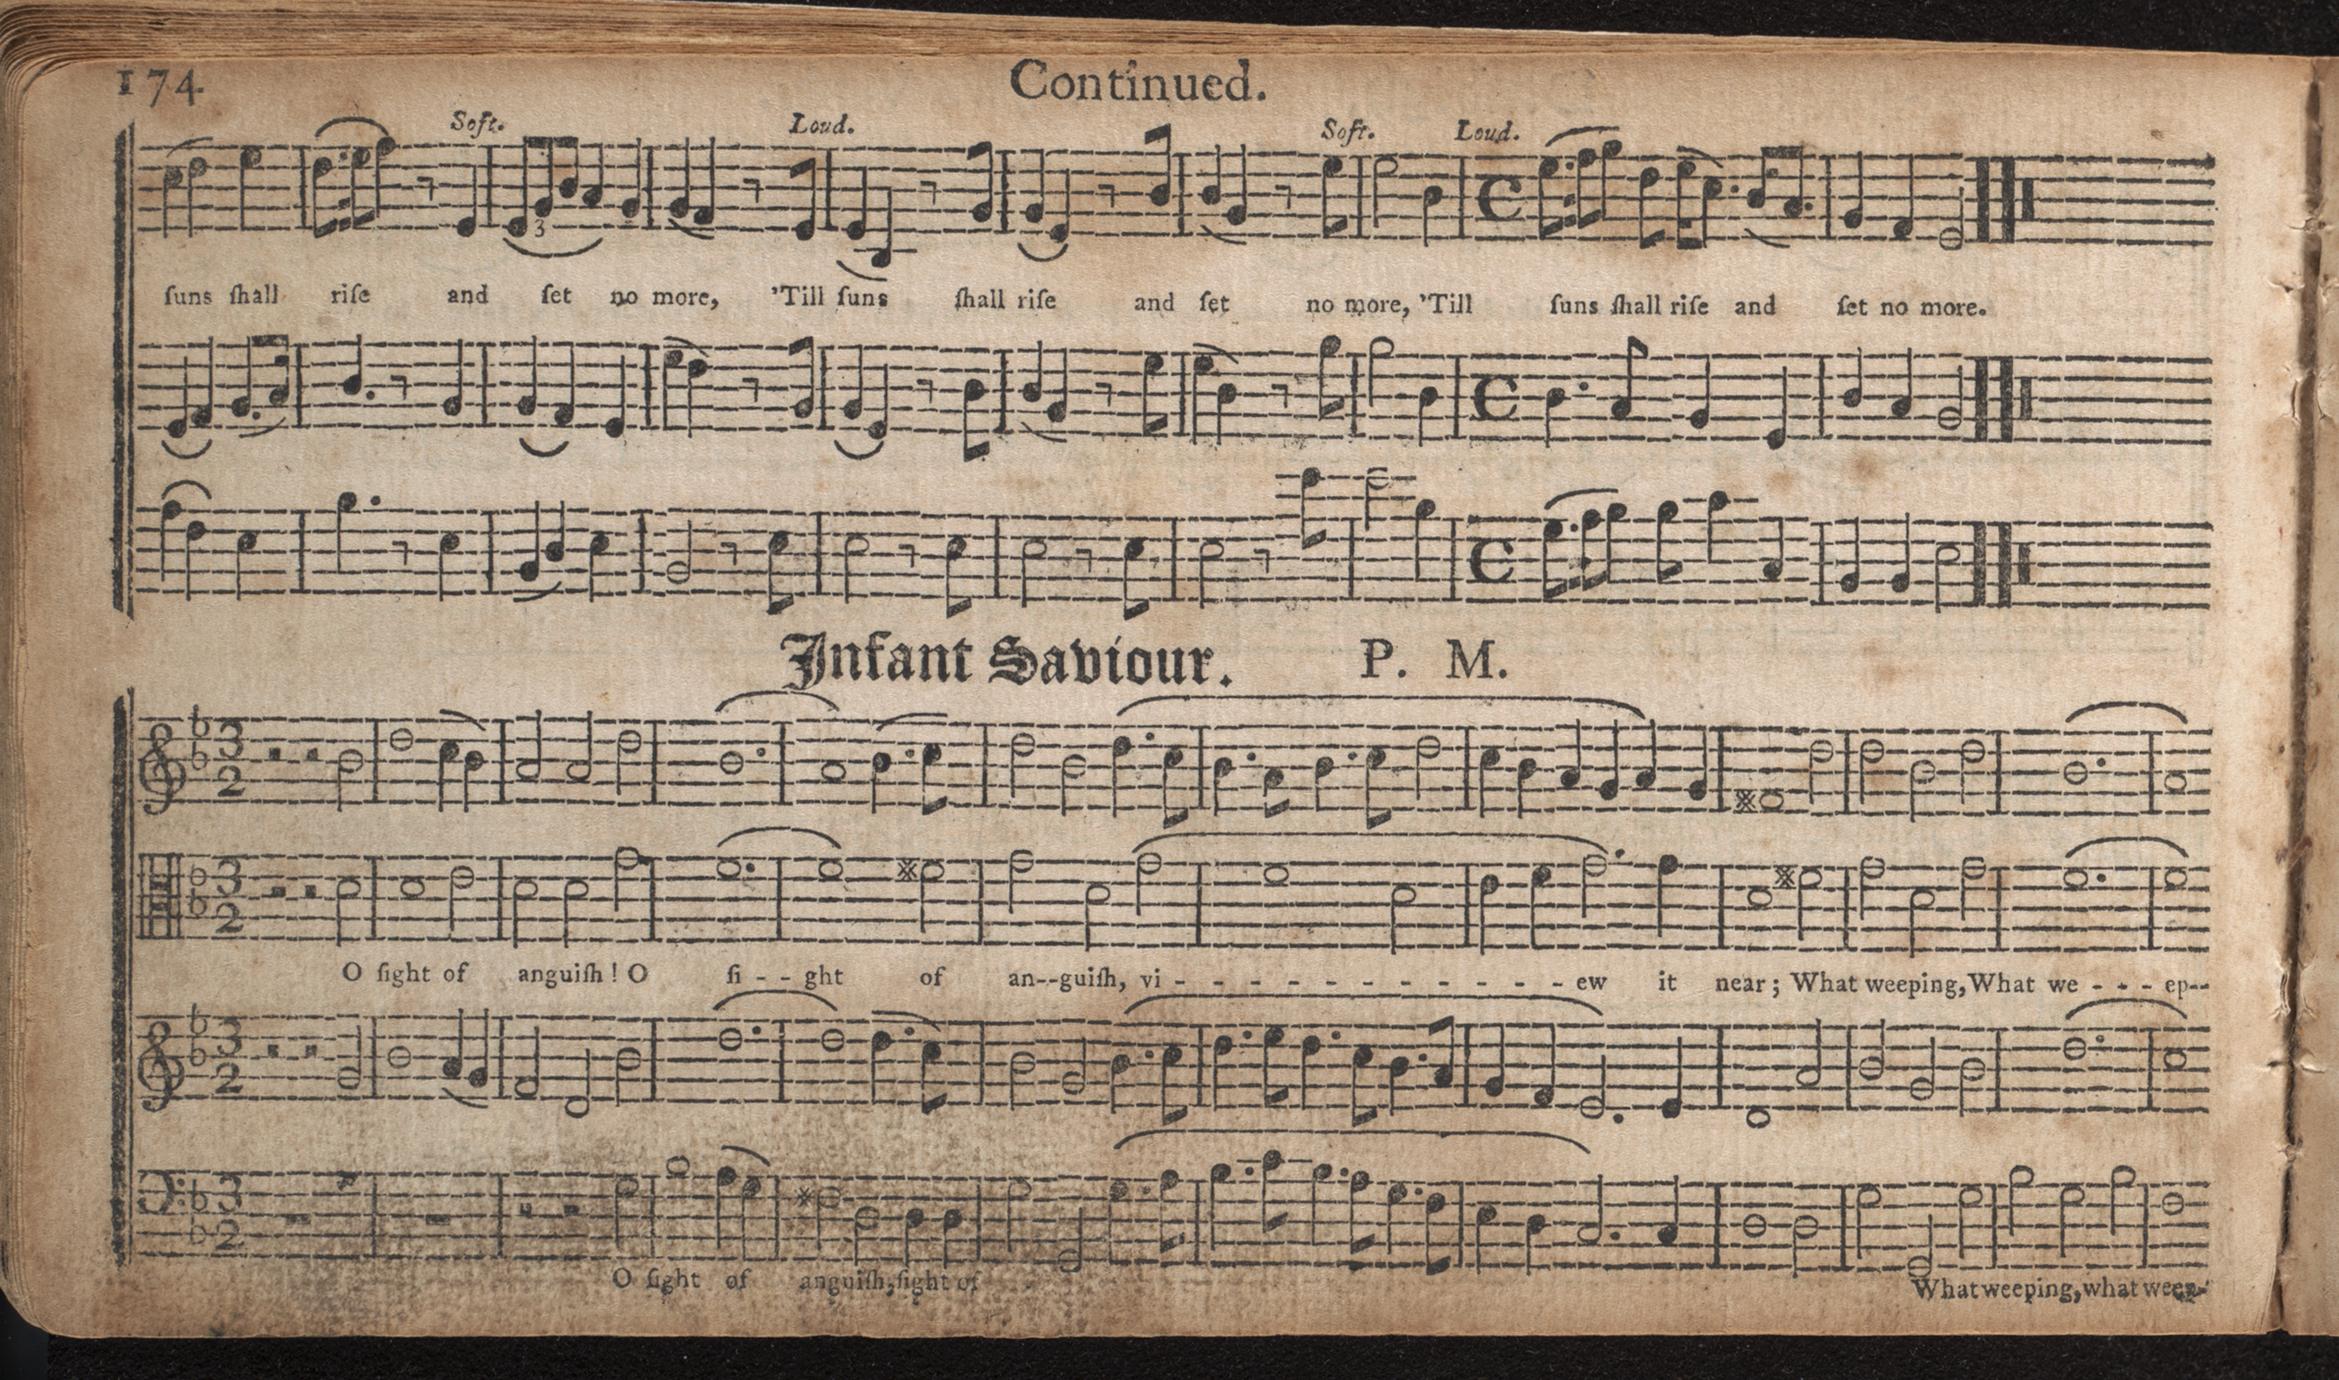 174
Continued.
Soft. Loud. Soft. Loud.
3
ſuns ſhall riſe and ſet no more, 'Till ſuns ſhall riſe and ſet no more, 'Till ſuns ſhall riſe and ſet no more.
Infant Saviour. P. M.
3
2
3
2
O ſight of anguiſh! O ſi - - ght of an--guiſh, vi - - - - - - - - - - - ew it near; What weeping, What we - - - ep--
3
2
3
2
O ſight of anguiſh, ſight of What weeping, what weep-